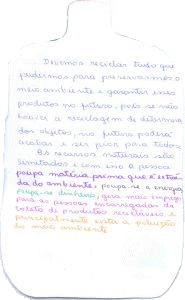 Devemos reciclar tudo que
pudermos para preservarmos o
meio ambiente e garantir mais
produtos no futuro, pois se não
houver a reciclagem de determina
dos objetos, no futuro poderá
acabar e ser pior para todos
Os recursos naturais são
limitados e com isso a pessoa
poupa matéria prima que é extraí
da do ambiente, poupa-se a energia,
poupa-se dinheiro, gera mais emprego
para as pessoas encarregadas da
coleta de produtos recicláveis e
principalmente evita a poluição
do meio ambiente